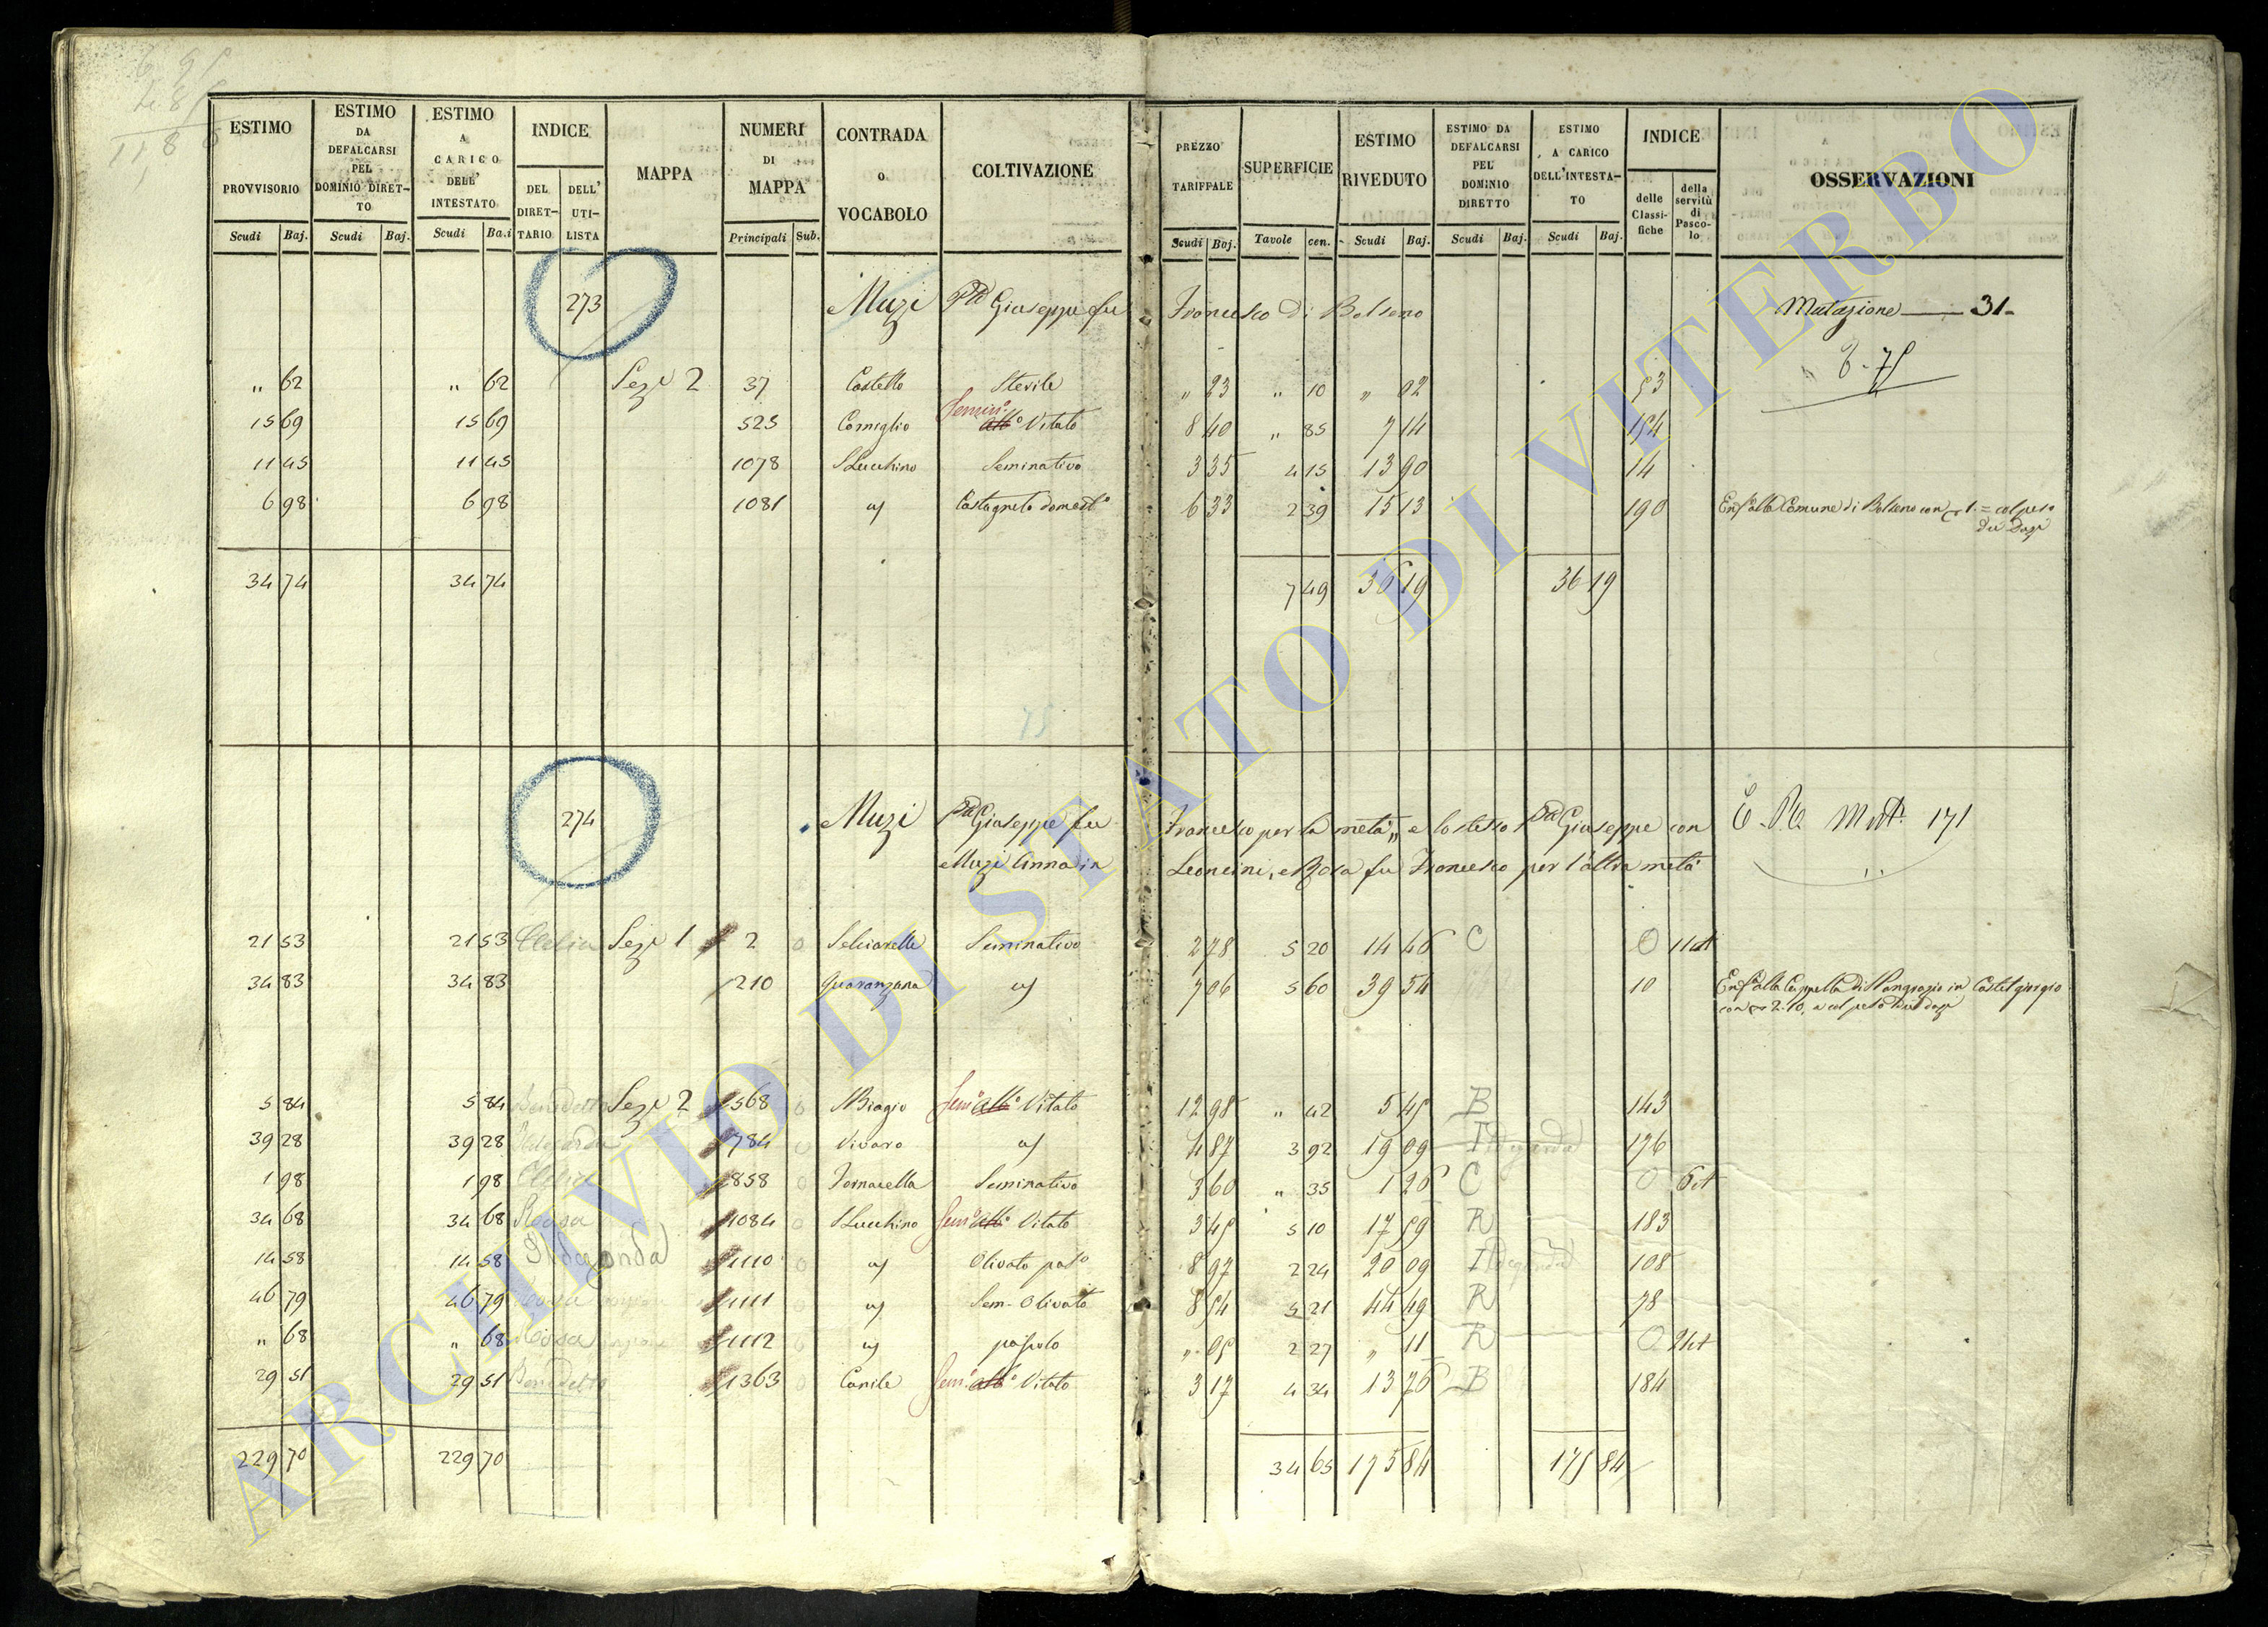 ESTIMO PROVVISORIO | ESTIMO DA DEFALCARSI PEL DOMINIO DIRET-TO | ESTIMO A CARICO DELL' INTESTATO | INDICE | MAPPA | NUMERI DI MAPPA | CONTRADA o VOCABOLO | COLTIVAZIONE | PREZZO TARIFFALE | SUPERFICIE | ESTIMO RIVEDUTO | ESTIMO DA DEFALCARSI PEL DOMINIO DIRETTO | ESTIMO A CARICO DELL'INTESTA-TO | INDICE | OSSERVAZIONI
DEL DIRET-TARIO | DELL' UTI-LISTA | delle Classi-fiche | della servitù di Pasco-lo
Scudi Baj. | Scudi Baj. | Scudi Ba.i | Principali Sub. | Scudi Baj. | Tavole cen. | Scudi Baj. | Scudi Baj. | Scudi Baj.
273 Muzi Giuseppe fu Francesco di Bolseno Mutazione — 31-
" 62 " 62 Seze 2 37 Castello Sterile " 23 " 10 " 02 53
15 69 15 69 525 Corniglio Semin° Vitato 8 40 " 85 7 14 154
11 45 11 45 1078 SLucchino Seminativo 3 35 4 15 13 90 14
6 98 6 98 1081 Castagneto domest° 6 33 2 39 15 13 190 Enf. alla Comune di Bolseno con 1.= col peso
34 74 34 74 7 49 36 19 36 19
75
274 Muzi Giuseppe fu Francesco per la metà,, e lo stesso Giuseppe con 171
Muzi Anna in Leoncini, e Rosa fu Francesco per l'altra metà
21 53 21 53 Clelia Seze 1 2 0 Selciarella Seminativo 2 78 5 20 14 46 C 0
34 83 34 83 210 Quaranzana 7 06 5 60 39 54 10 Enf. alla Cappella di in Castel giorgio
5 84 5 84 Benedetto Seze 2 568 SBiagio Sem° Vitato 12 98 " 42 5 45 B 143
39 28 39 28 784 Vivaro 4 87 3 92 19 09 Ildegonda 176
1 98 1 98 Clelia 858 0 Fornacella Seminativo 3 60 " 35 1 26 C 0
34 68 34 68 Rosa 1084 0 SLucchino Sem° Vitato 3 45 5 10 17 59 R 183
14 58 14 58 Ildegonda 1110 0 Olivato 8 97 2 24 20 09 Ildegonda 108
46 79 46 79 Rosa 1111 0 Sem- Olivato 8 54 5 21 44 49 R 78
" 68 " 68 Rosa 1112 pascolo " 05 2 27 " 11 R 0
29 51 29 51 Benedetto 1363 0 Canile Sem° Vitato 3 17 4 34 13 76 B 184
229 70 229 70 34 65 175 84 175 84
ARCHIVIO DI STATO DI VITERBO